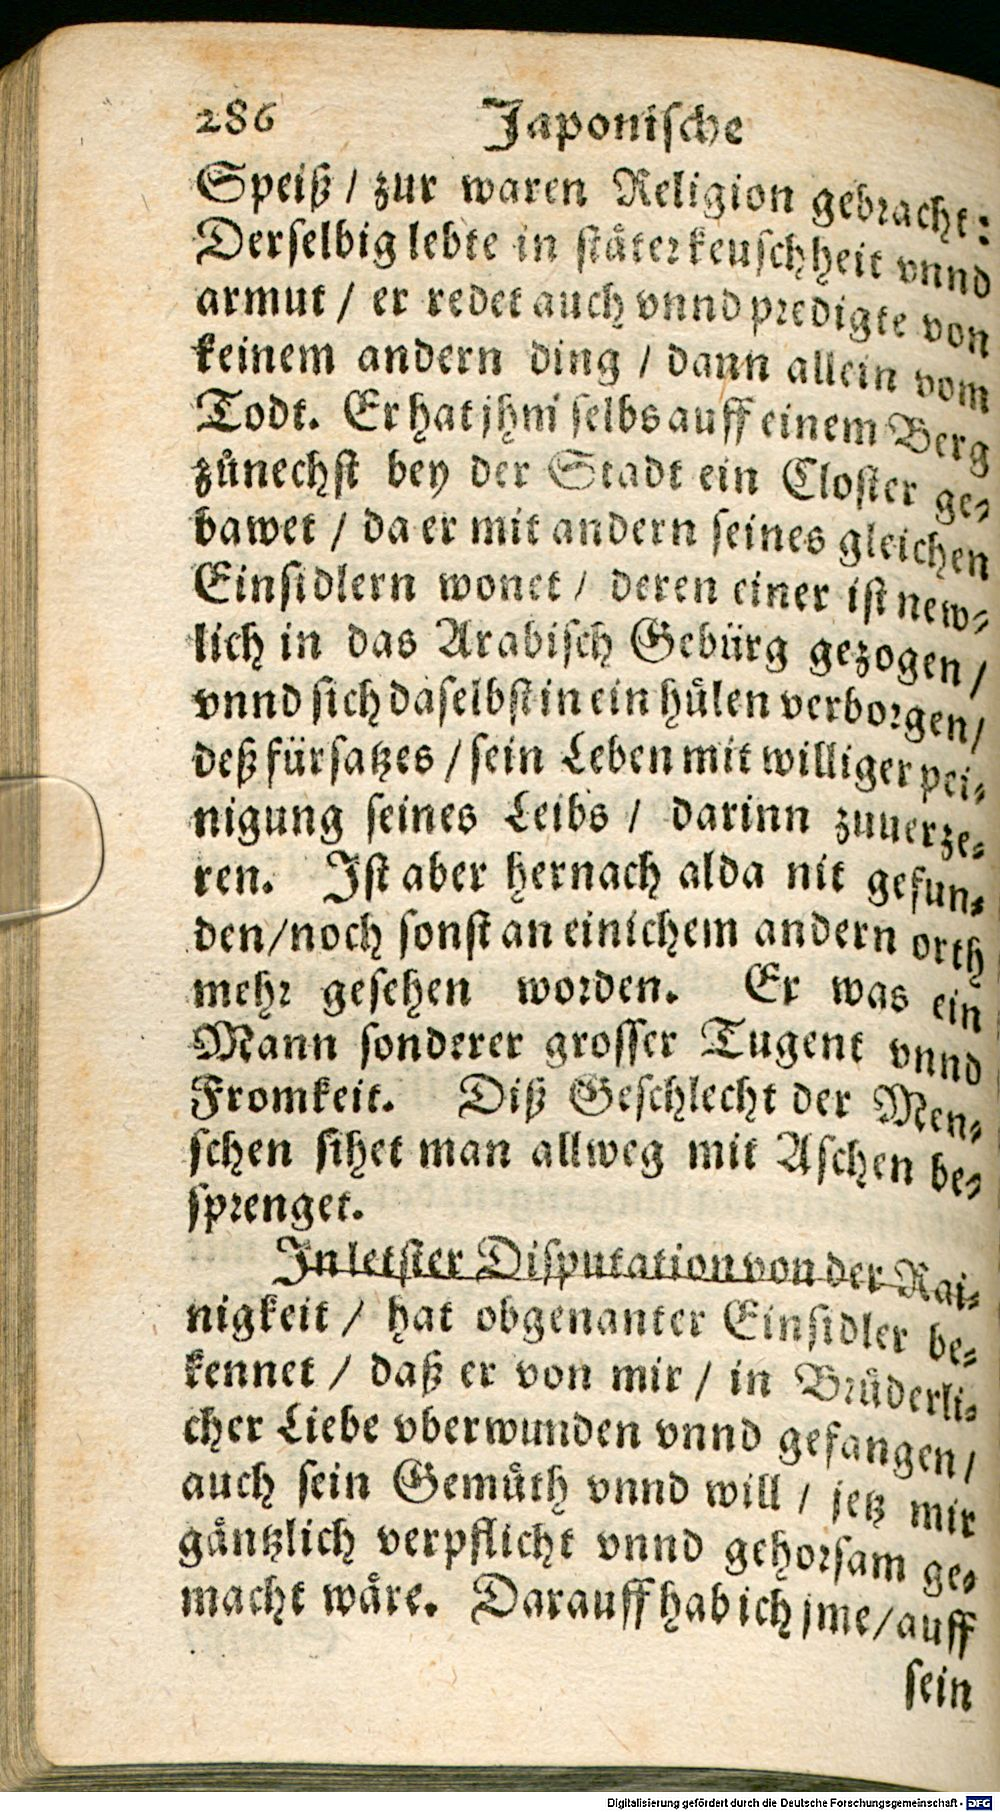 286 Japonische
Speiß / zur waren Religion gebracht:
Derselbig lebte in stäter keuschheit vnnd
armut / er redet auch vnnd predigte von
keinem andern ding / dann allein vom
Todt. Er hat jhm selbs auff einem Berg
zůnechst bey der Stadt ein Closter ge-
bawet / da er mit andern seines gleichen
Einsidlern wonet / deren einer ist new-
lich in das Arabisch Gebürg gezogen /
vnnd sich daselbst in ein hülen verborgen /
deß fürsatzes / sein Leben mit williger pei-
nigung seines Leibs / darinn zuuerze-
ren. Ist aber hernach alda nit gefun-
den / noch sonst an einichem andern orth
mehr gesehen worden. Er was ein
Mann sonderer grosser Tugent vnnd
Fromkeit. Diß Geschlecht der Men-
schen sihet man allweg mit Aschen be-
sprenget.
In letster Disputation von der Rai-
nigkeit / hat obgenanter Einsidler be-
kennet / daß er von mir / in Brüderli-
cher Liebe vberwunden vnnd gefangen /
auch sein Gemüth vnnd will / jetz mir
gäntzlich verpflicht vnnd gehorsam ge-
macht wäre. Darauff hab ich jme / auff
sein
Digitalisierung gefördert durch die Deutsche Forschungsgemeinschaft - DFG